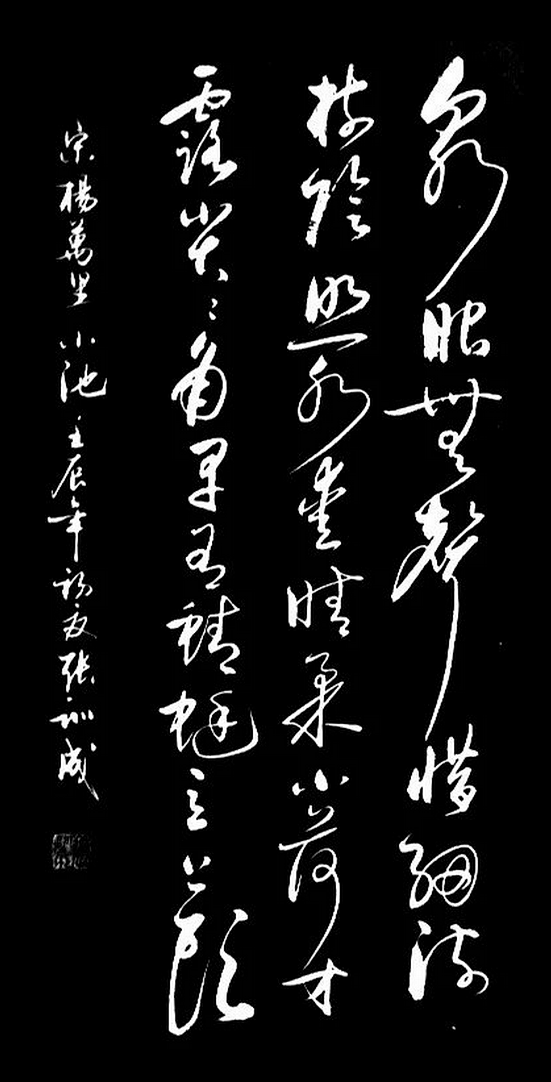 泉眼無聲惜細流
樹陰照水愛晴柔小荷才
露尖〻角早有蜻蜓立上頭
宋楊萬里小池壬辰年初夏張訓成